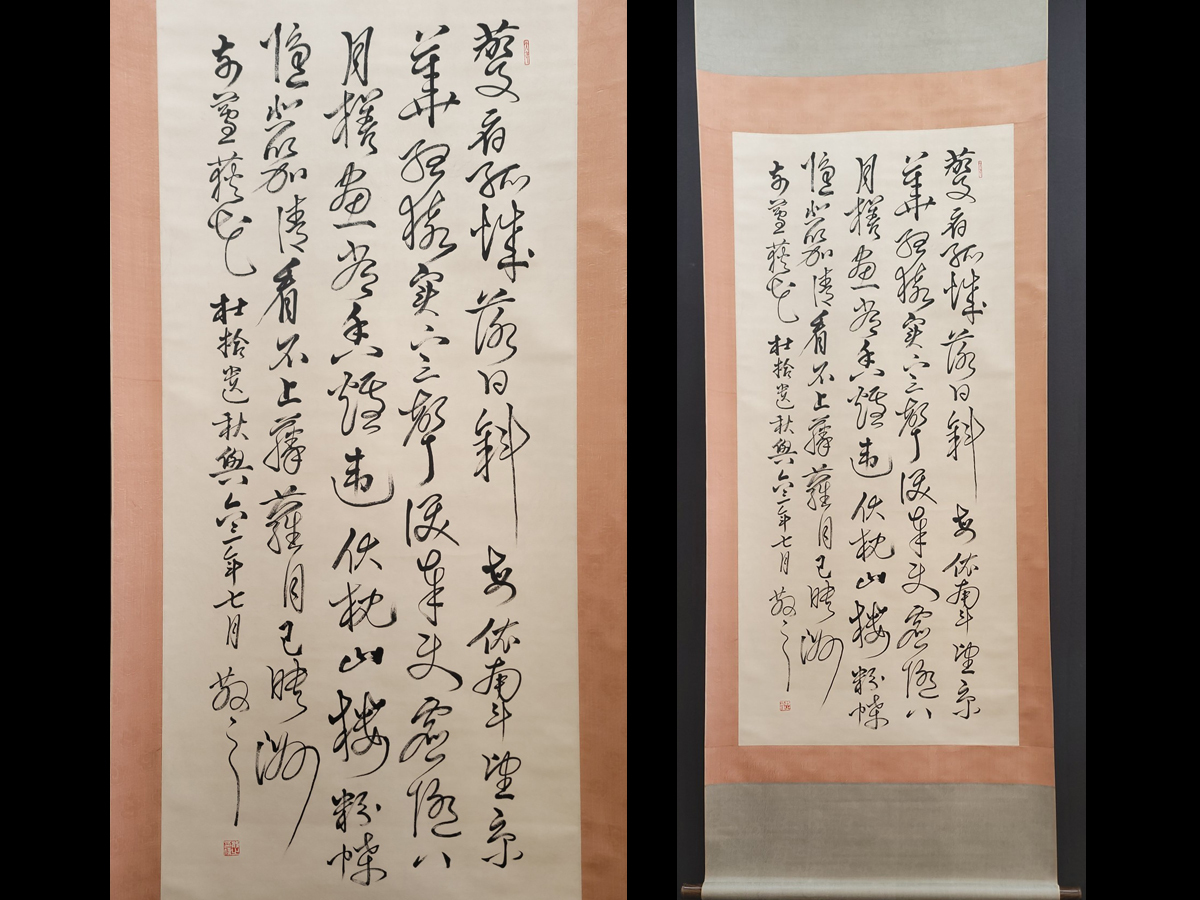 夔府孤城落日斜每依南斗望京
華聽猿實下三聲淚奉使虛隨八
月槎畫省香爐違伏枕山樓粉堞
隱悲笳請看石上藤蘿月已映洲
前蘆荻花 杜拾遺秋興六三年七月 散之
夔府孤城落日斜每依南斗望京
華聽猿實下三聲淚奉使虛隨八
月槎畫省香爐違伏枕山樓粉堞
隱悲笳請看石上藤蘿月已映洲
前蘆荻花 杜拾遺秋興六三年七月 散之